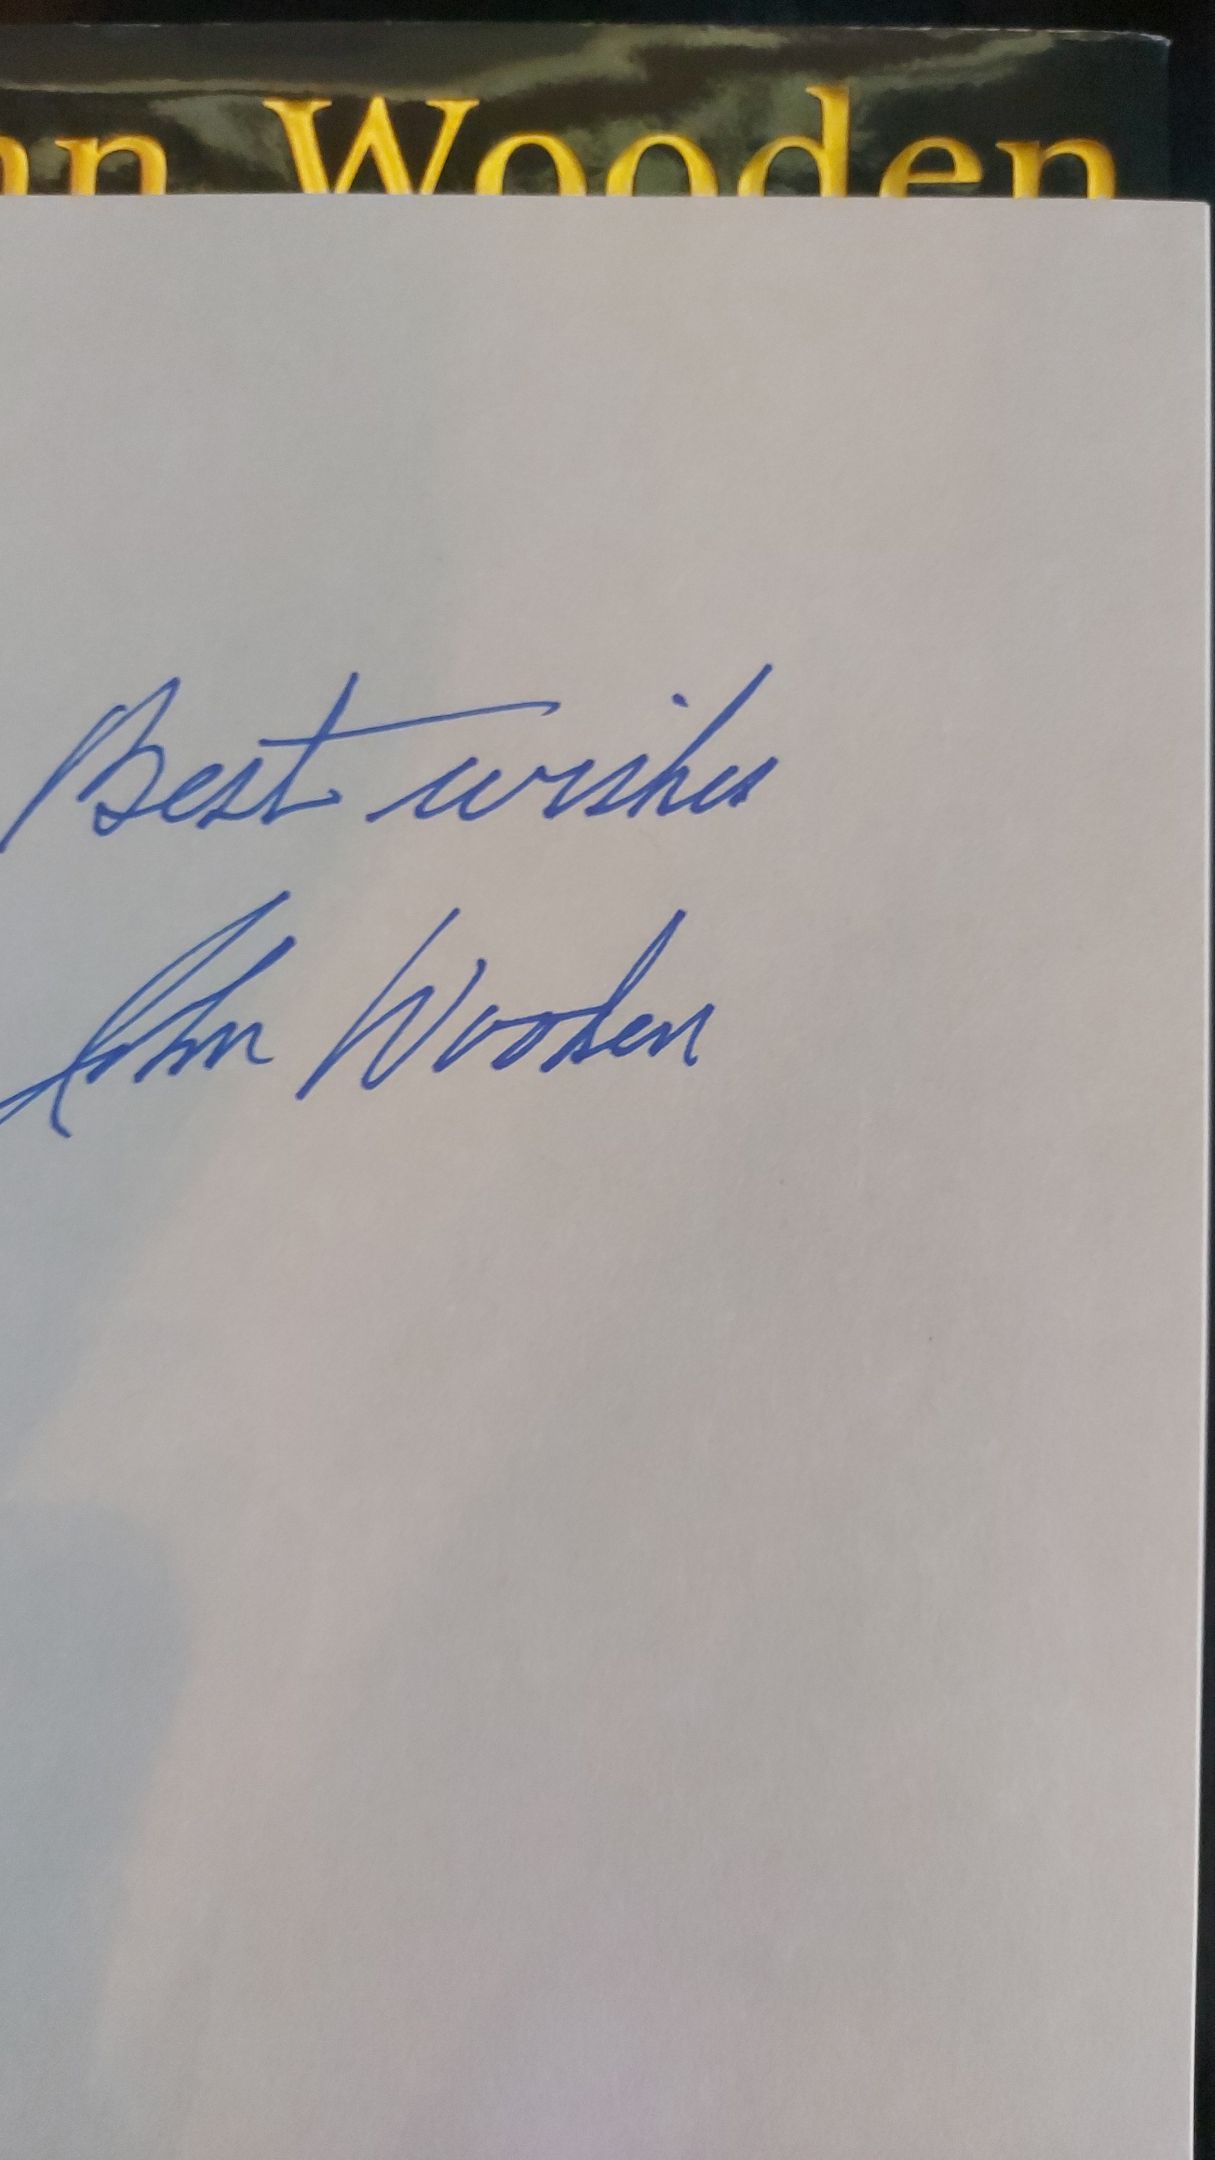 hn Wooden
Best wishes
John Wooden